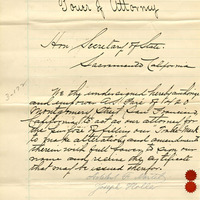 Power of Attorney
Hon. Secretary of State,
Sacramento California
We the undersigned hereby authorize
and empower Geo. of No 20
Montgomery Street San Francisco
California to act as our attorney for
the purpose of filing our Trade Mark
to make alterations and amendments
therein with full power to sign our
name and receive the certificate
that may be issued therefor.
Joseph